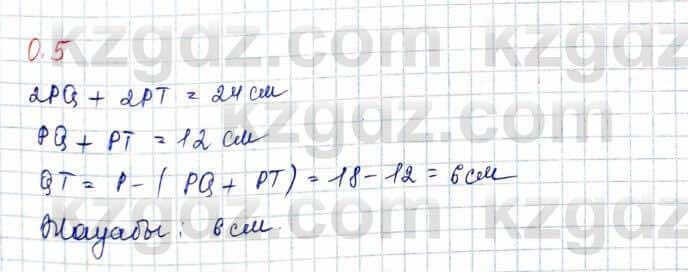 0.5
kzgdz.com
2PQ + 2PT = 24 см
PQ + PT = 12 см
kzgdz.com
QT = P - ( PQ + PT ) = 18 - 12 = 6 см
Жауабы: 6 см.
kzgdz.com